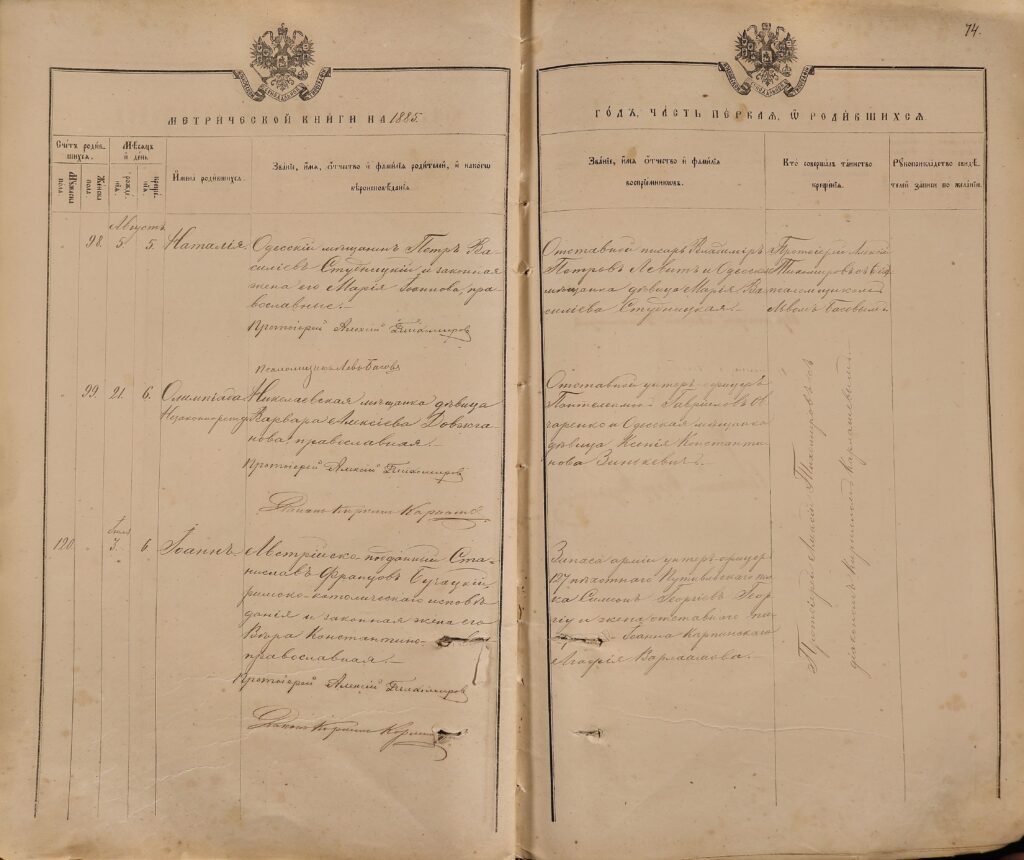 74.
МЕТРИЧЕСКОЙ КНИГИ НА 1885.
ГОДЪ, ЧАСТЬ ПЕРВАЯ, Ѡ РОДИВШИХСЯ
Счетъ родив-
шихся.
Мужеска пола
Женска пола
Мѣсяцъ
и день
рожде-
нія.
креще-
нія.
Имена родившихся.
Званіе, имя, отчество и фамилія родителей, и какого
вѣроисповѣданія
Званіе, имя отчество и фамилія
воспріемниковъ.
Кто совершалъ таинство
крещенія.
Рукоприкладство свидѣ-
телей записи по желанію.
Августъ
98. 5 5. Наталія.
Одесскій мѣщанинъ Петръ Ва-
силіевъ Студницкій и законная
жена его Марія Іоаннова, пра-
вославные.
Протоіерей Алексій Тихомировъ
Псаломщикъ Левъ Басовъ
Отставной писарь Владиміръ
Петровъ Левитъ и Одесская
мѣщанка дѣвица Марія Ва-
силіева Студницкая.
Протоіерей Алексій
Тихомировъ съ
псаломщикомъ
Львомъ Басовымъ
99. 21. 6. Олимпіада
Незаконнорожд.
Николаевская мѣщанка дѣвица
Варвара Алексіева Довжга-
нова православная.
Протоіерей Алексій Тихомировъ
Діаконъ Кириллъ
Отставной унтеръ-офицеръ
Пантелеимонъ Гавріиловъ Ов-
чаренко и Одесская мѣщанка
дѣвица Ксенія Константи-
нова Зинкевичъ.
Протоіерей Алексій Тихомировъ съ
діакономъ Кирилломъ
120. 3. 6 Іоаннъ
Австрійско-подданный Ста-
ниславъ Францовъ Бучацкій
римско-католическаго исповѣ-
данія и законная жена его
Вѣра Константино-
православная.
Протоіерей Алексій Тихомировъ
Діаконъ Кириллъ
Запаса арміи унтеръ-офицеръ
127 пѣхотнаго Путивльскаго пол-
ка Симеонъ Георгіевъ Геор-
гіу и жена отставного
Іоанна Карпинскаго
Агафія Варлаамова.